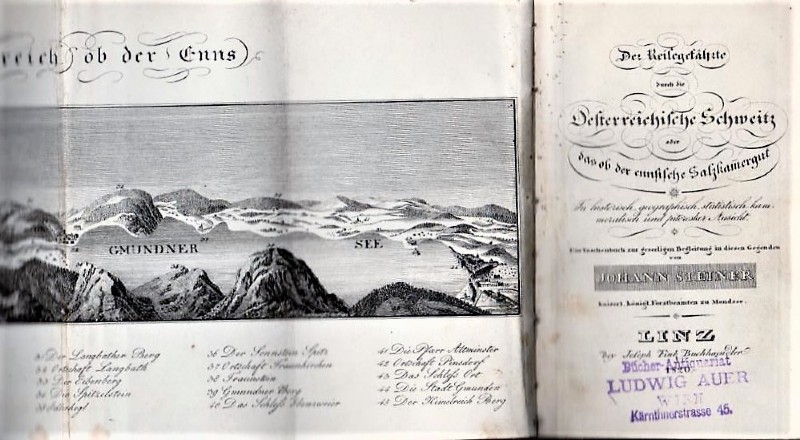 reich ob der Enns
GMUNDNER SEE
Der Langbather Berg
34 Ortschaft Langbath
35 Der Eibenberg
36 Die Spitzelstein
36 Der Sonnstein Spitz
37 Ortschaft Traunkirchen
38 Traunstein
39 Gmundner Berg
40 Das Schloß Ebenzweier
41 Die Pfarr Altmünster
42 Ortschaft Pinsdorf
43 Das Schloß Ort
44 Die Stadt Gmunden
45 Der Himelreich Berg
Der Reisegefährte
durch die
Oesterreichische Schweitz
oder
das ob der ennsische Salzkamergut
In historisch, geographisch, statistisch, kam-
meralisch und pitoresker Ansicht.
Ein Taschenbuch zur geselligen Begleitung in diesen Gegenden
von
JOHANN STEINER
kaiserl. königl. Forstbeamten zu Mondsee.
LINZ
bey Joseph Fink Buchhändler
Bücher-Antiquariat
LUDWIG AUER
WIEN
Kärntnerstrasse 45.